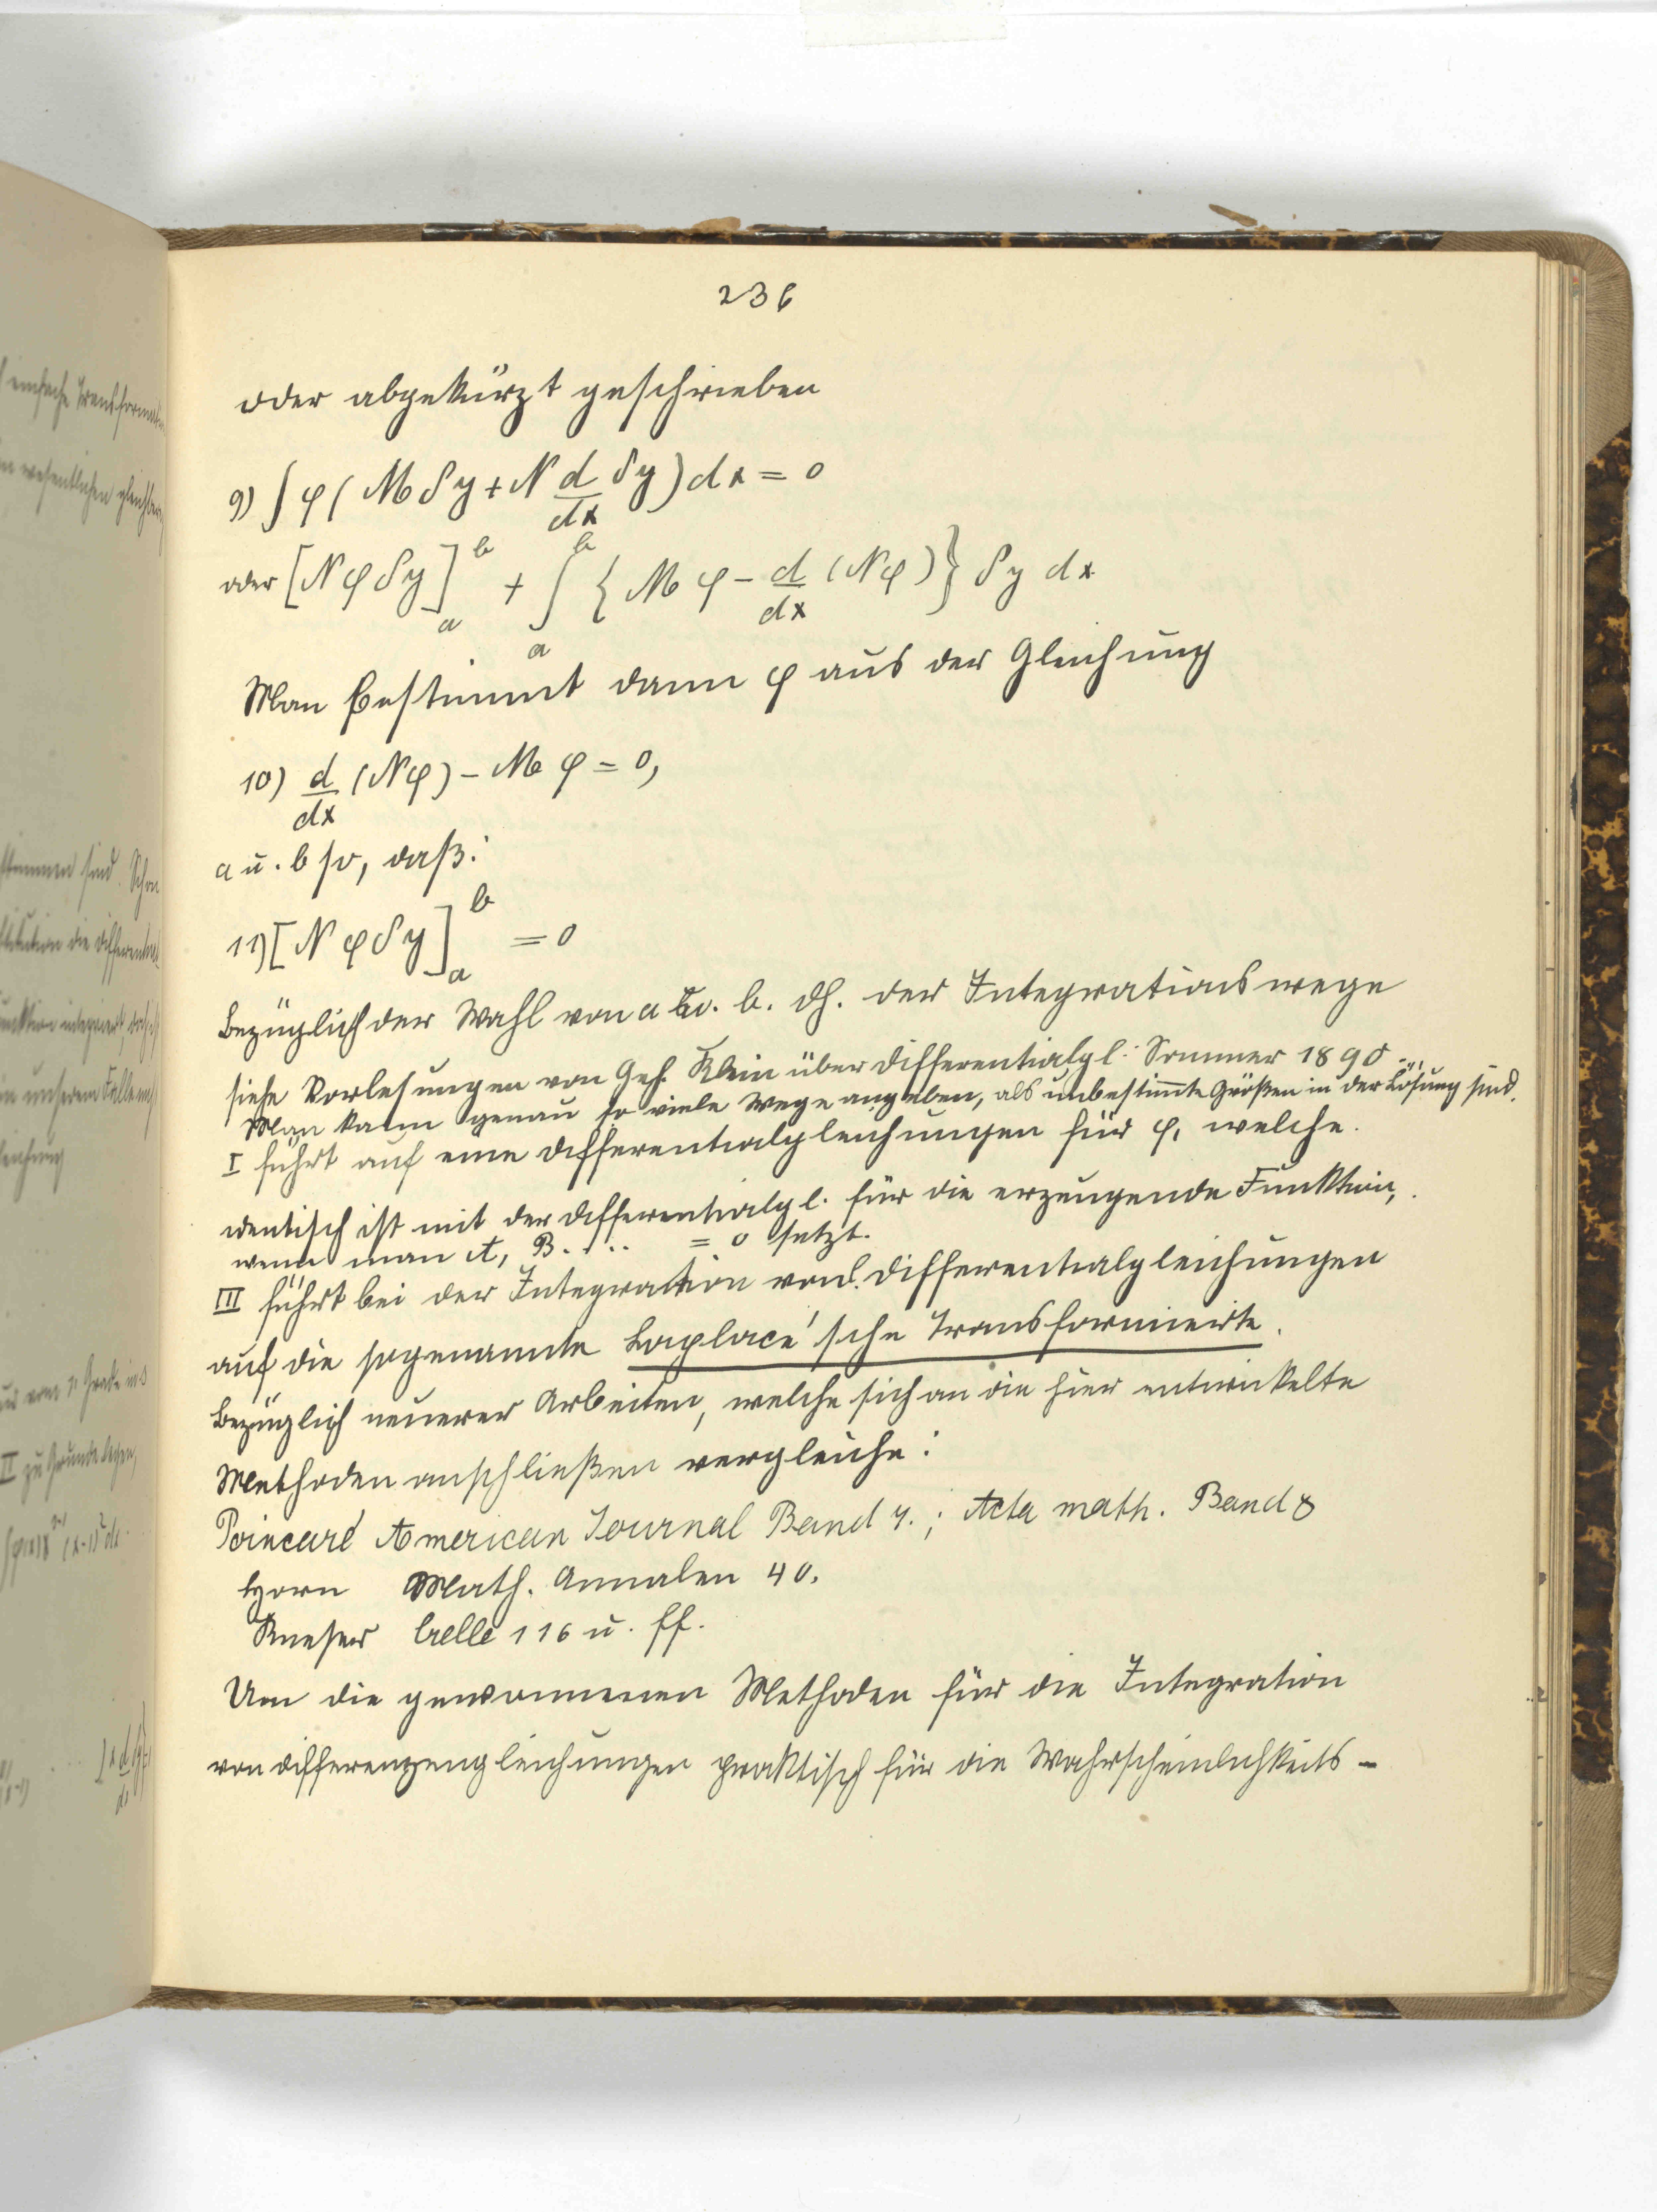 236
oder abgekürzt geschrieben
9) ∫ φ ( M δy + N d/dx δy ) dx = 0
oder [N φ δy]_a^b + ∫_a^b { M φ - d/dx (Nφ) } δy dx
Man bestimmt dann φ aus der Gleichung
10) d/dx (Nφ) - M φ = 0,
a u. b so, daß:
11) [N φ δy]_a^b = 0
Bezüglich der Wahl von a u. b. dh. der Integrationswege
siehe Vorlesungen von Geh. Klein über Differentialgl: Sommer 1890.
Man kann genau so viele Wege angeben, als unbestimmte Größen in der Lösung sind.
I führt auf eine Differentialgleichungen für φ, welche
identisch ist mit der Differentialgl. für die erzeugende Funktion,
wenn man A, B.... = 0 setzt.
III führt bei der Integration von l. Differentialgleichungen
auf die sogenannte Laplace'sche Transformierte.
Bezüglich neuerer Arbeiten, welche sich an die hier entwickelte
Methoden anschließen vergleiche:
Poincaré American Journal Band 7.; Acta math. Band 8
Horn Math. Annalen 40.
Kneser Crelle 116 u. ff.
Um die gewonnenen Methoden für die Integration
von Differenzengleichungen praktisch für die Wahrscheinlichkeits-